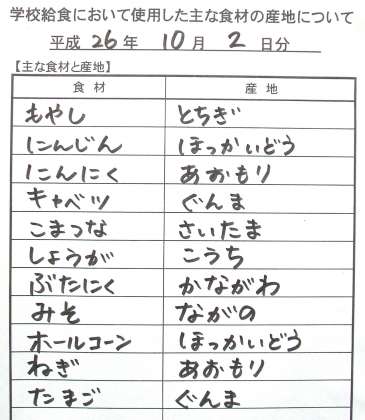 学校給食において使用した主な食材の産地について
平成 26 年 10 月 2 日分
【主な食材と産地】
食材 産地
もやし とちぎ
にんじん ほっかいどう
にんにく あおもり
キャベツ ぐんま
こまつな さいたま
しょうが こうち
ぶたにく かながわ
みそ ながの
ホールコーン ほっかいどう
ねぎ あおもり
たまご ぐんま